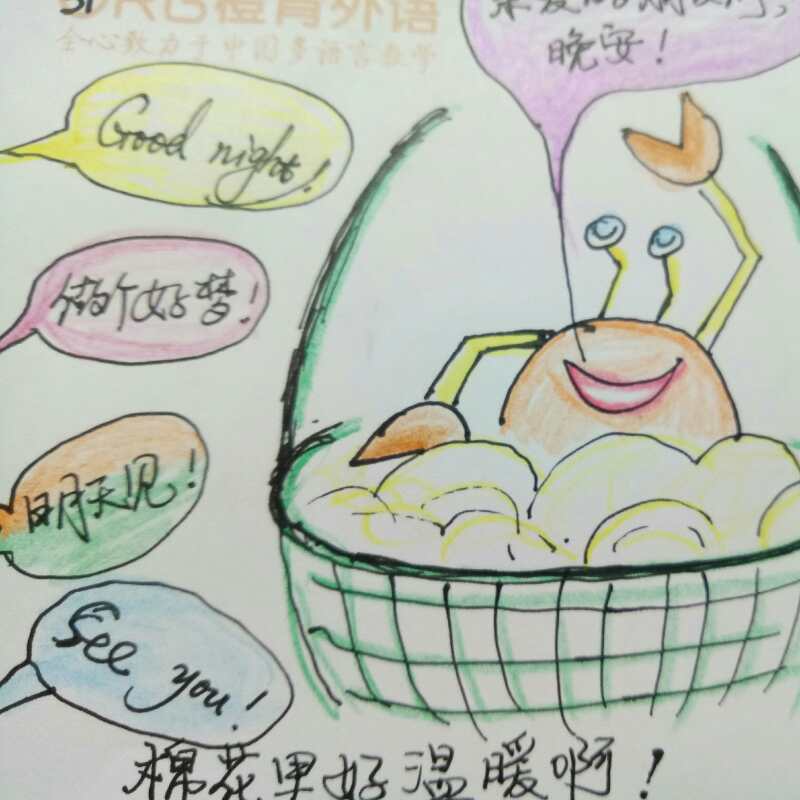 橙育外语
全心致力于中国多语言教学
亲爱的朋友们,
晚安!
Good night!
做个好梦!
明天见!
See you!
棉花里好温暖啊!